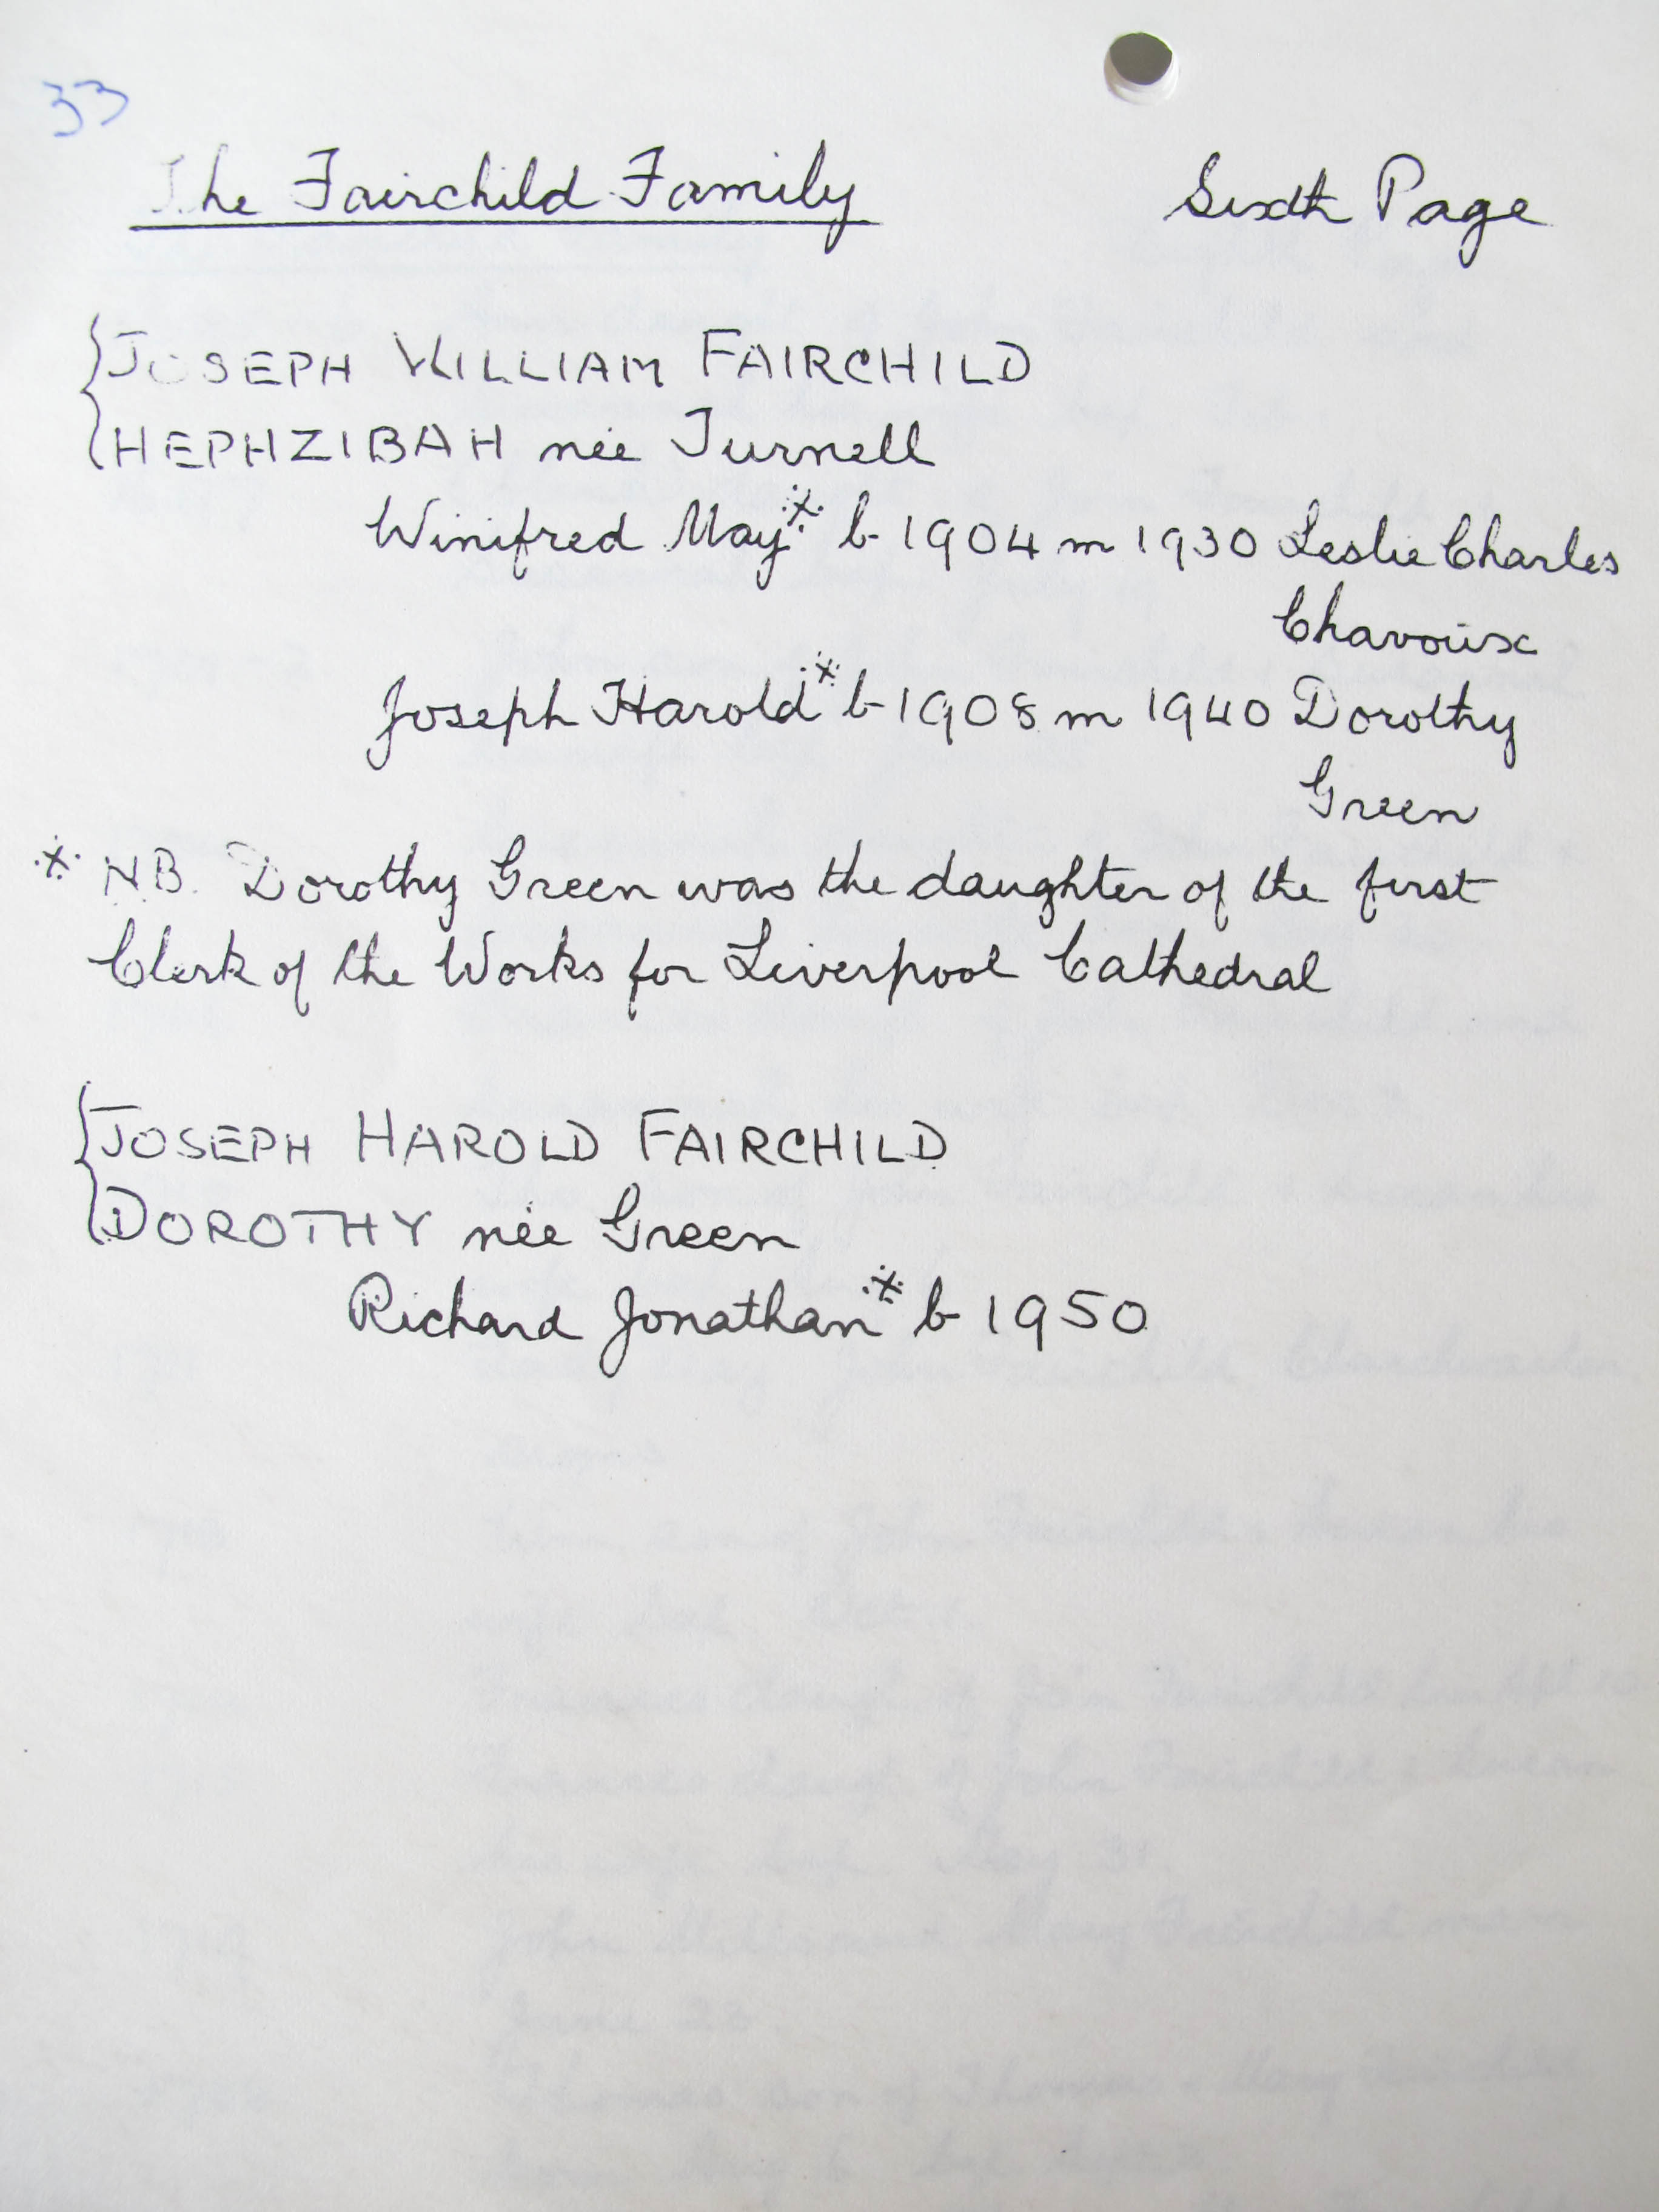 33
The Fairchild Family Sixth Page
JOSEPH WILLIAM FAIRCHILD
HEPHZIBAH née Turnell
Winifred May※ b 1904 m 1930 Leslie Charles
Chavoux
Joseph Harold※ b 1908 m 1940 Dorothy
Green
※ NB. Dorothy Green was the daughter of the first
Clerk of the Works for Liverpool Cathedral
JOSEPH HAROLD FAIRCHILD
DOROTHY née Green
Richard Jonathan※ b 1950